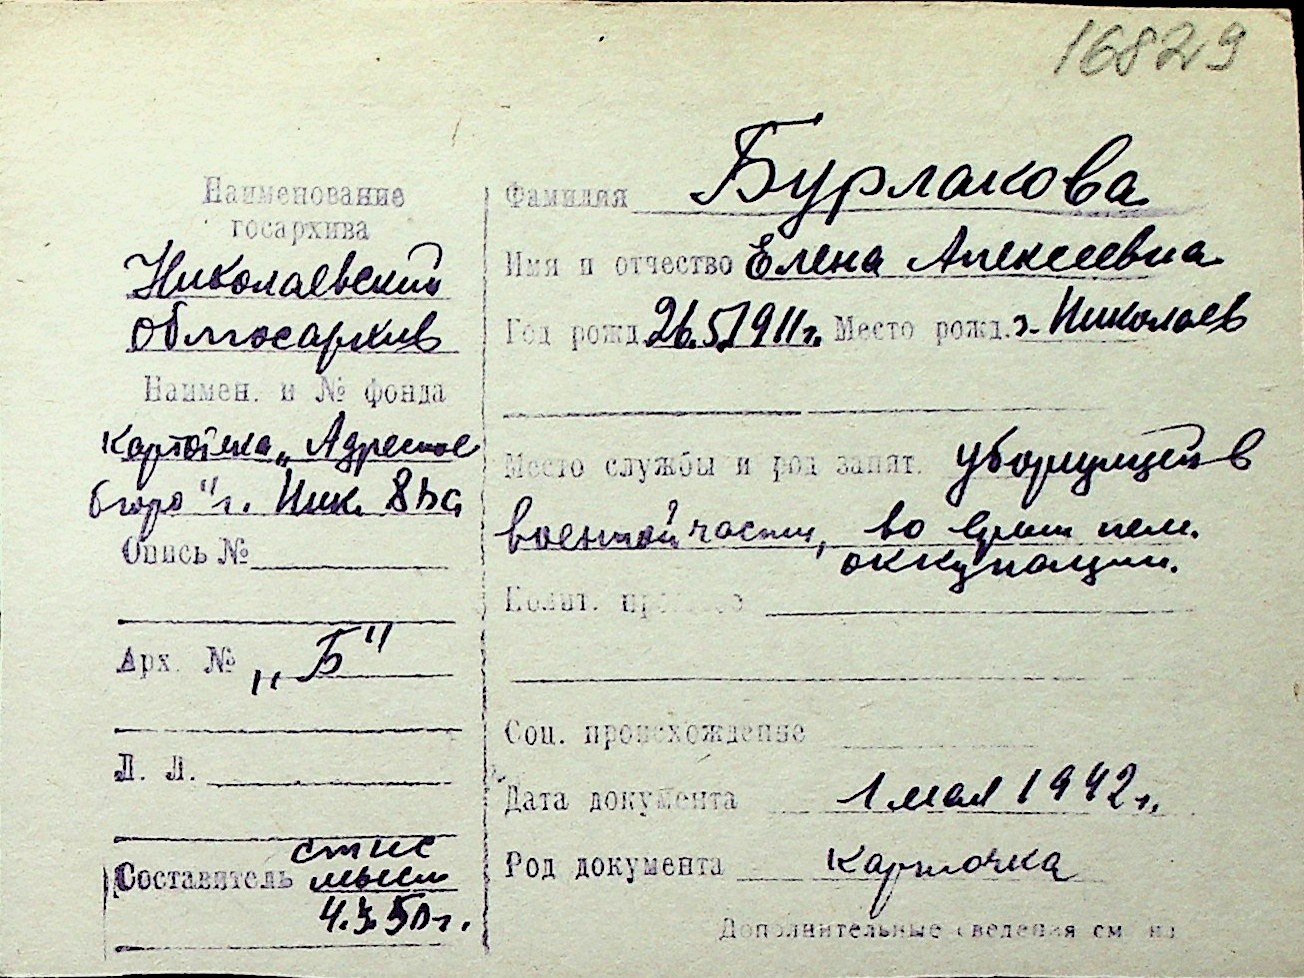 16829
Наименование
госархива
Николаевский
облгосархив
Наимен. и № фонда
картотека „Адресное
бюро" г. Ник.
Опись №
Арх. № „Б"
Л. Л.
Составитель
50 г.
Фамилия Бурлакова
Имя и отчество Елена Алексеевна
Год рожд. 26.5.1911г. Место рожд. г. Николаев
Место службы и род занят. уборщицей в
военной части, во врем нем.
оккупации.
Полит. процесс
Соц. происхождение
Дата документа 1 мая 1942 г.
Род документа карточка
Дополнительные сведения см на